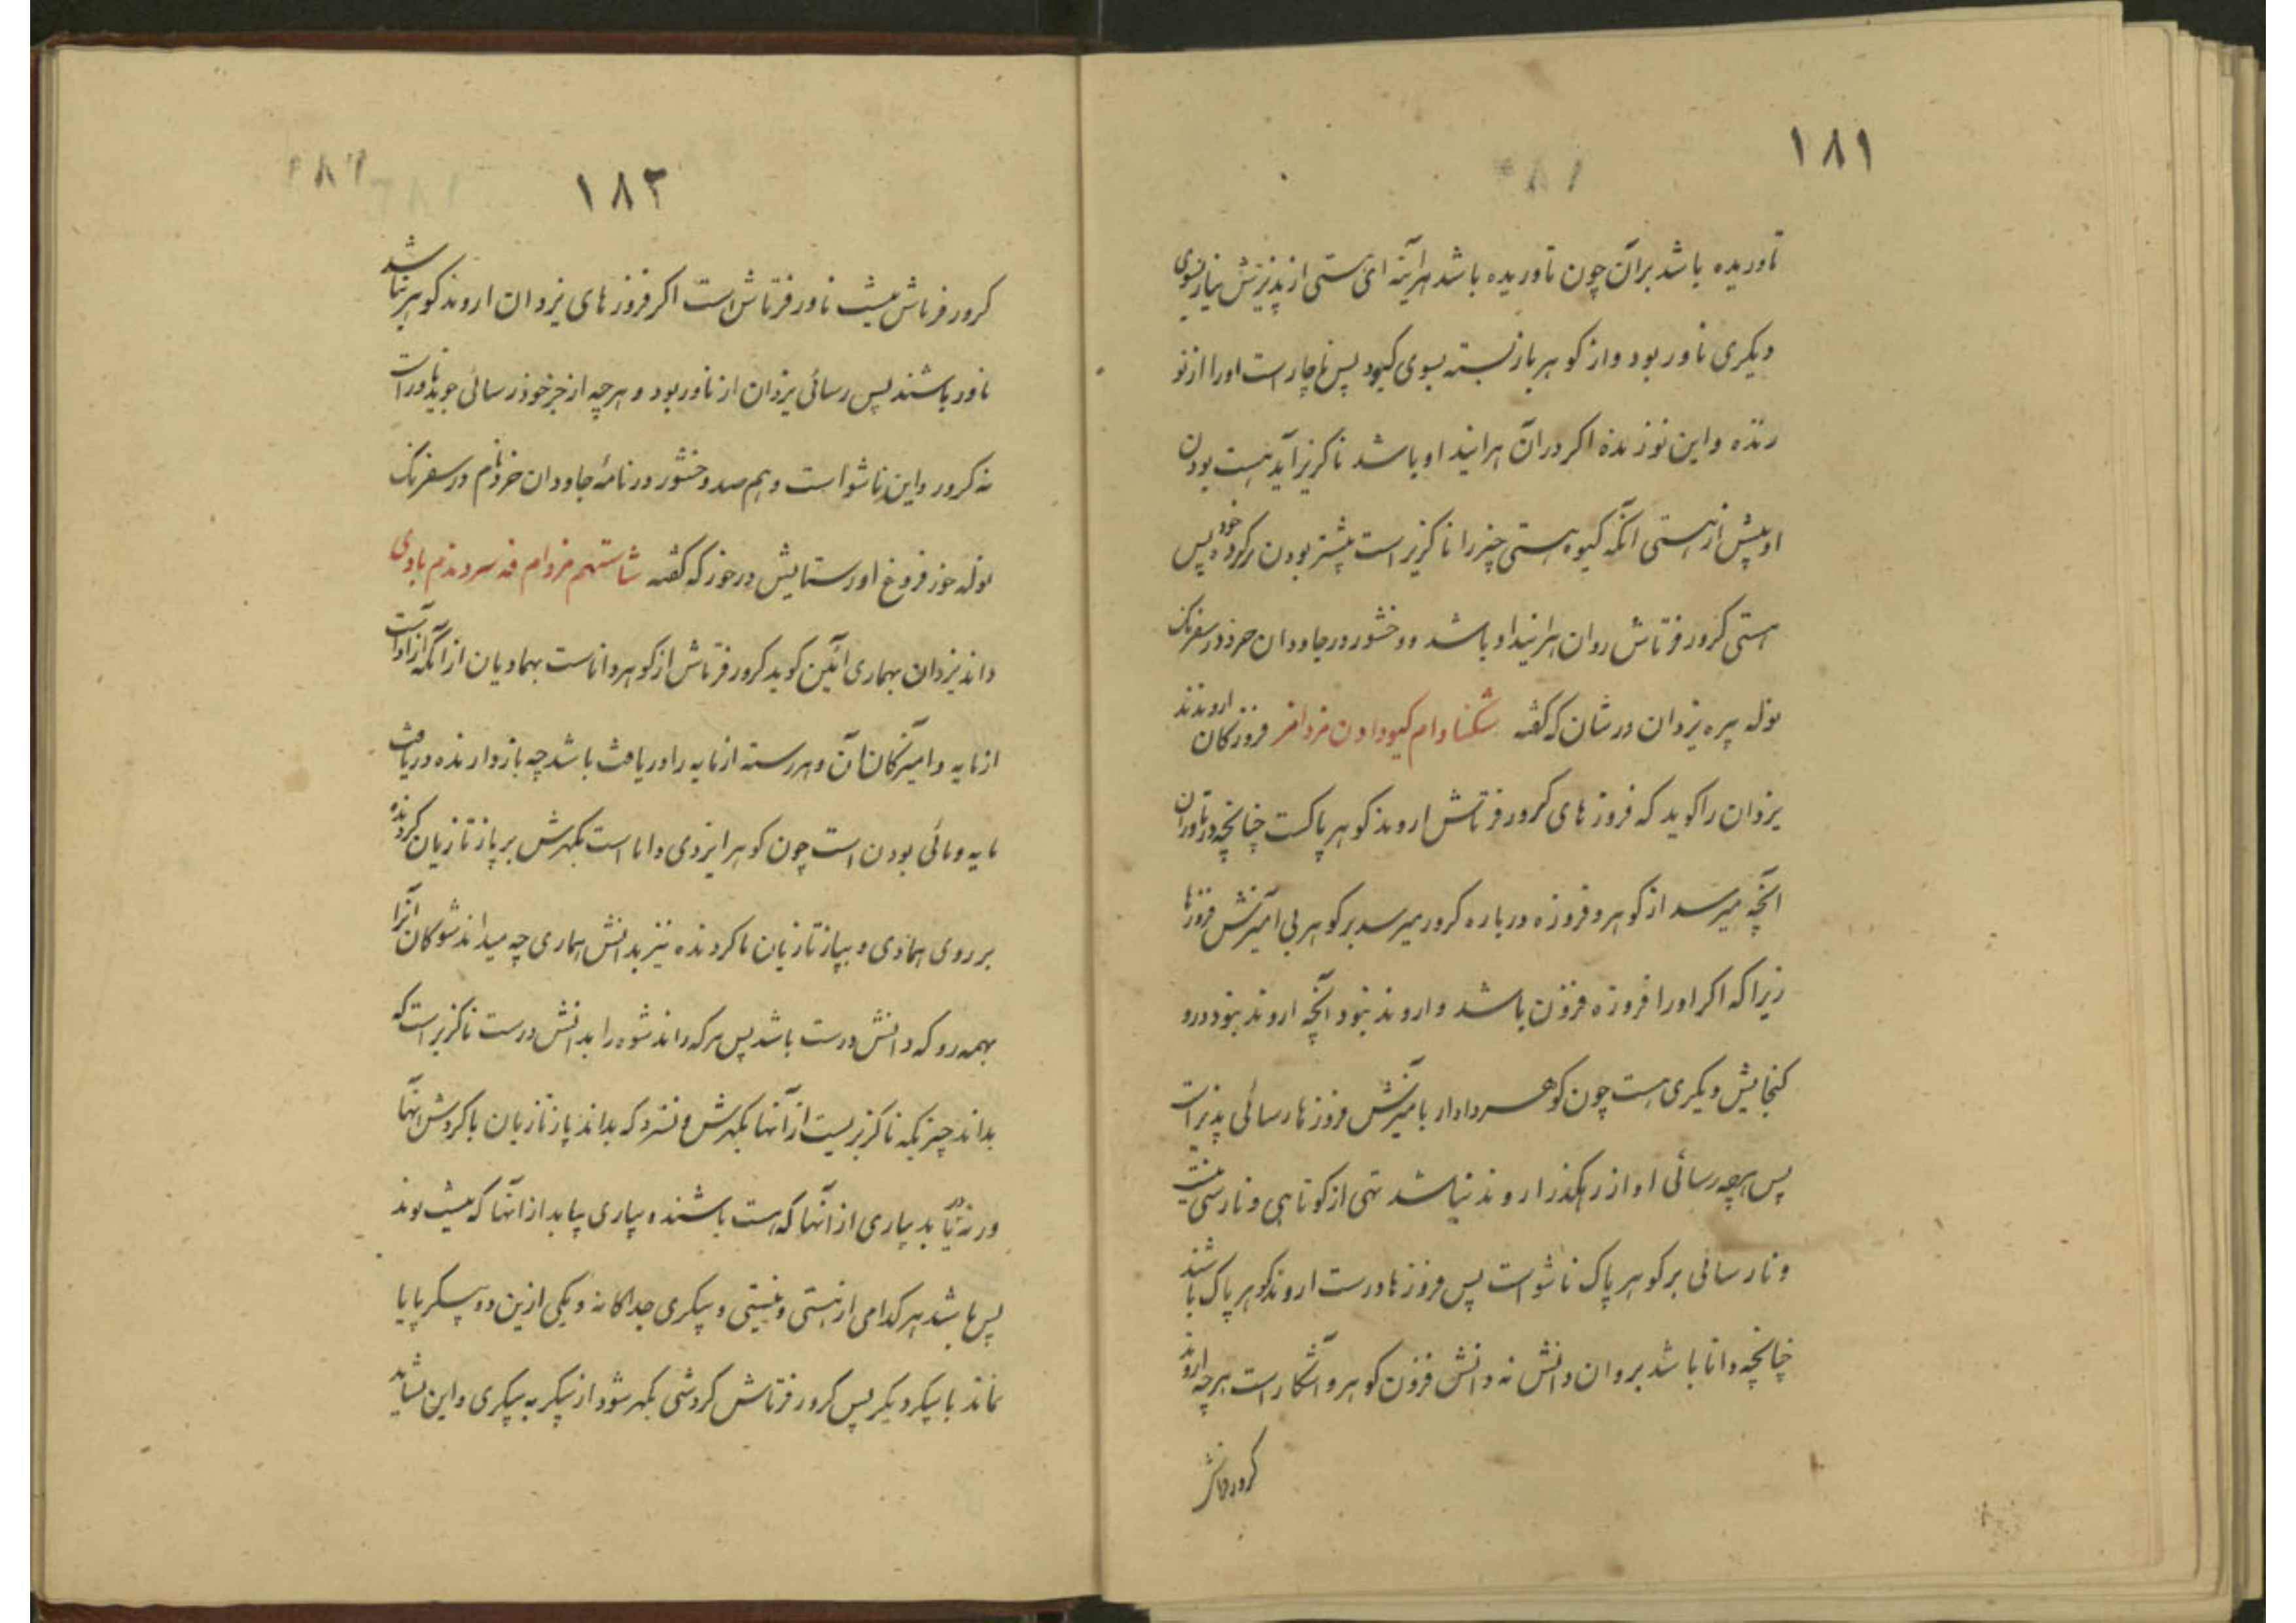 ۱۸۱
تاوریده باشد بران چون تاوریده باشد هرآینه ای هستی از پذیرش نیاز بسوی
دیکری ناور بود و از کوهر باز بسته بسوی کیود پس ناچار است اورا از نو
رنده و این نوزنده اکر دران هرانید او باشد ناکزیر آید هست بودن
او پیش از هستی انکه کیوه هستی چیز را ناکزیر است پیشتر بودن بر کرده خود پس
هستی کرور فرتاش روان هرانیداو باشد و وخشور در جاودان خرد در سفرنک
نوله پیره یزدان در شان که کفته شکنا دام کیود اون مزدامر فروزکان اروندند
یزدان را کوید که فروزهای کرور فرتاش اروند کوهر پاکست چنانچه در تاوران
آنچه میرسد از کوهر و فروزه درباره کرور میرسد بر کوهر بی آمیزش فروزها
زیراکه اکر اورا فروزه فزون باشد و اروند نبود آنچه اروند نبود درو
کنجایش دیکری هست چون کوهر دادار بامیزش فروزها رسائی پذیر است
پس هرچه رسائی او از رهکذر اروند نباشد تهی از کوتاهی و نارسی نیست
و نارسائی بر کوهر پاک ناشو است پس فروزها درست اروند کوهر پاک باشند
چنانچه دانا باشد بروان دانش نه دانش فزون کوهر و آشکار است هرچه اروند
کرور فرتاش
۱۸۲
کرور فرتاش نیست ناور فرتاش است اکر فروزهای یزدان اروند کوهر نباشد
ناور باشند پس رسائی یزدان از ناور بود و هرچه از جز خود رسائی جوید ناور است
نه کرور و این ناشو است و هم صد وخشور در نامه جاودان خرد نام در سفرنک
نوله خور فروغ اور ستایش در خور که کفته شاستهم مزدام فه سردندم بادی
داند یزدان بهماری آئین کوید کرور فرتاش از کوهر داناست بهمادیان از آنکه آزاد است
از مایه و امیزکان آن و هر رسته از مایه را دریافت باشد چه بازدارنده دریافت
مایه و مائی بودن است چون کوهر ایزدی دانا است بکهرش بر پازتازیان کردنده
بر روی همادی و بپازتازیان ناکردنده نیز بدانش هماری چه میداند شوکان آنرا
بهمه رو که دانش درست باشد پس هرکه داند شوه را بدانش درست ناکزیر است که
بداند چیزیکه ناکزیریست از آنها بکهرش و نسزد که بداند پازتازیان با کردش آنها
ورنه دریابد پاری از آنها که هست باشند و پاری پیابد از آنها که نیست بوند
پس باشد هر کدامی از هستی و نیستی و پیکری جداکانه و یکی ازین دو پیکر پایا
نماند با پیکر دیکر پس کرور فرتاش کردشی بکهر شود از پیکر به پیکری و این نشاید